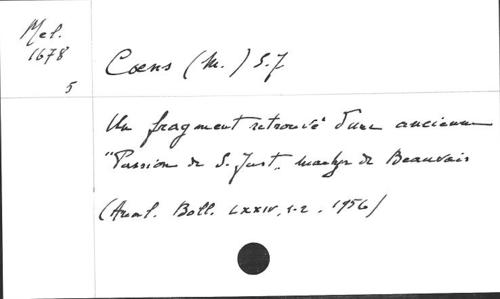 Mel.
1678
5
Coens (M.) S.J
Un fragment retrouvé d'une ancienne
"Passion de S. Just, martyr de Beauvais
(Anal. Boll. LXXIV, 1-2, 1956)